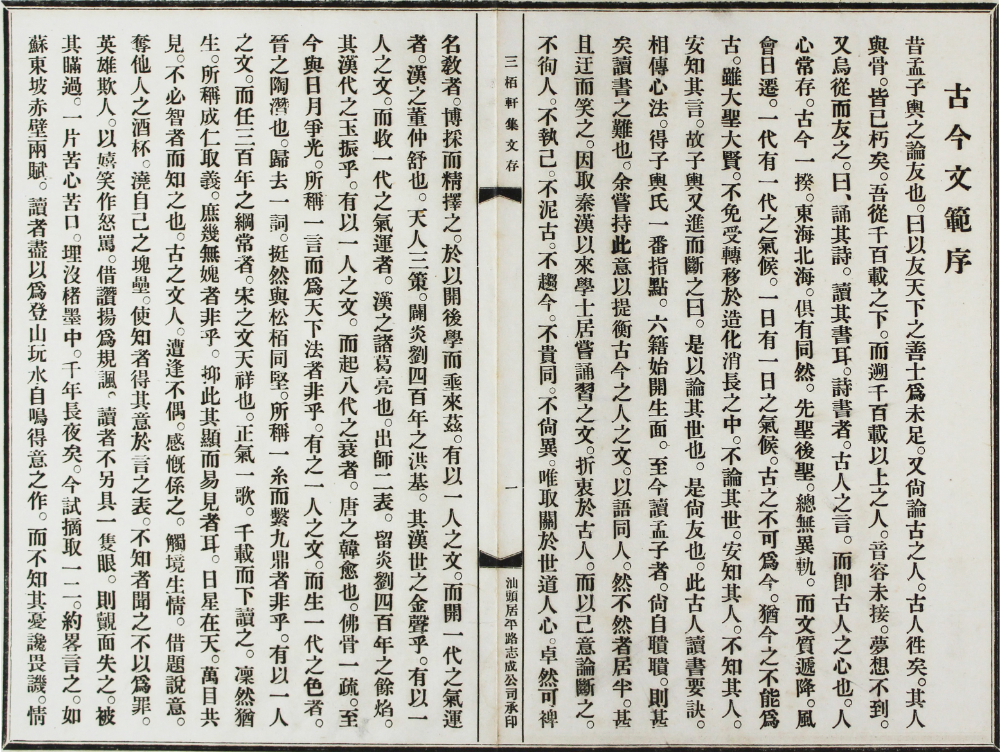 古今文範序
昔孟子輿之論友也。曰以友天下之善士爲未足。又尙論古之人。古人徃矣。其人
與骨。皆已朽矣。吾從千百載之下。而遡千百載以上之人。音容未接。夢想不到。
又烏從而友之。曰、誦其詩。讀其書耳。詩書者。古人之言。而卽古人之心也。人
心常存。古今一揆。東海北海。俱有同然。先聖後聖。總無異軌。而文質遞降。風
會日遷。一代有一代之氣候。一日有一日之氣候。古之不可爲今。猶今之不能爲
古。雖大聖大賢。不免受轉移於造化消長之中。不論其世。安知其人。不知其人。
安知其言。故子輿又進而斷之曰。是以論其世也。是尙友也。此古人讀書要訣。
相傳心法。得子輿氏一番指點。六籍始開生面。至今讀孟子者。尙自聵聵。則甚
矣讀書之難也。余嘗持此意以提衡古今之人之文。以語同人。然不然者居半。甚
且迂而笑之。因取秦漢以來學士居嘗誦習之文。折衷於古人。而以己意論斷之。
不徇人。不執己。不泥古。不趨今。不貴同。不尙異。唯取關於世道人心。卓然可裨
三栢軒集文存
一
汕頭居平路志成公司承印
名敎者。博採而精擇之。於以開後學而垂來茲。有以一人之文。而開一代之氣運
者。漢之董仲舒也。天人三策。闢炎劉四百年之洪基。其漢世之金聲乎。有以一
人之文。而收一代之氣運者。漢之諸葛亮也。出師二表。留炎劉四百年之餘焰。
其漢代之玉振乎。有以一人之文。而起八代之衰者。唐之韓愈也。佛骨一疏。至
今與日月爭光。所稱一言而爲天下法者非乎。有之一人之文。而生一代之色者。
晉之陶潛也。歸去一詞。挺然與松栢同堅。所稱一糸而繫九鼎者非乎。有以一人
之文。而任三百年之綱常者。宋之文天祥也。正氣一歌。千載而下讀之。凜然猶
生。所稱成仁取義。庶幾無媿者非乎。抑此其顯而易見者耳。日星在天。萬目共
見。不必智者而知之也。古之文人。遭逢不偶。感慨係之。觸境生情。借題說意。
奪他人之酒杯。澆自己之塊壘。使知者得其意於言之表。不知者聞之不以爲罪。
英雄欺人。以嬉笑作怒罵。借讚揚爲規諷。讀者不另具一隻眼。則覿面失之。被
其瞞過。一片苦心苦口。埋沒楮墨中。千年長夜矣。今試摘取一二。約畧言之。如
蘇東坡赤壁兩賦。讀者盡以爲登山玩水自鳴得意之作。而不知其憂讒畏譏。情